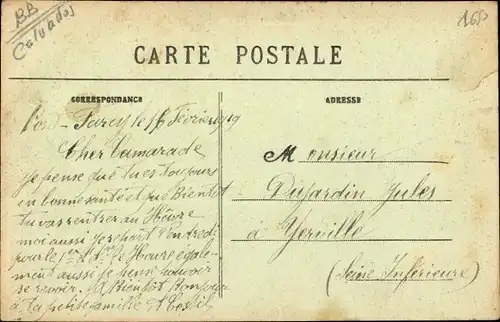 BB
Calvados
CARTE POSTALE
CORRESPONDANCE
ADRESSE
Pont-Farcy le 16 Février 1919
Cher Camarade
Je pense que tu es toujours
en bonne santé et que Bientôt
tu vas rentrer au Hâvre
moi aussi
pour le 1er le Havre égale-
ment aussi je pense pouvoir
se revoir. A Bientôt Bonjour
à ta petite famille
Monsieur
Dujardin Jules
à Yerville
(Seine Inférieure)